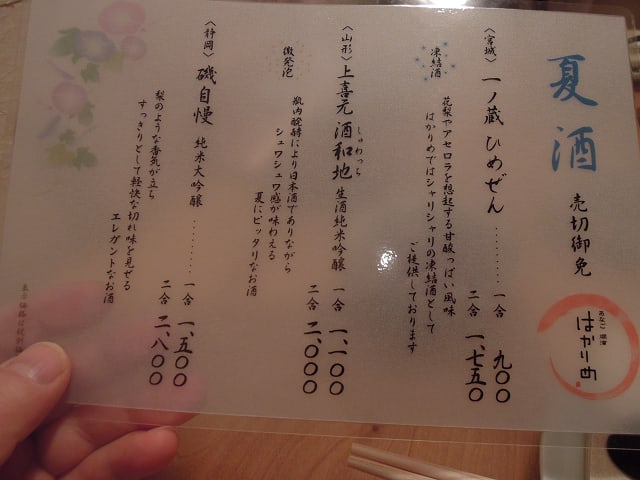 夏酒
売切御免
あなご
はかりめ
〈宮城〉
凍結酒
一ノ蔵 ひめぜん………
一合 九〇〇
二合 一、七五〇
花梨やアセロラを想起する甘酸っぱい風味
はかりめではシャリシャリの凍結酒として
ご提供しております
〈山形〉
微発泡
上喜元 酒和地 生酒純米吟醸
しゅわっち
一合 一、一〇〇
二合 二、〇〇〇
瓶内醗酵により日本酒でありながら
シュワシュワ感が味わえる
夏にピッタリなお酒
〈静岡〉
磯自慢 純米大吟醸………
一合 一、五〇〇
二合 二、八〇〇
梨のような香気が立ち
すっきりとして軽快な切れ味を見せる
エレガントなお酒